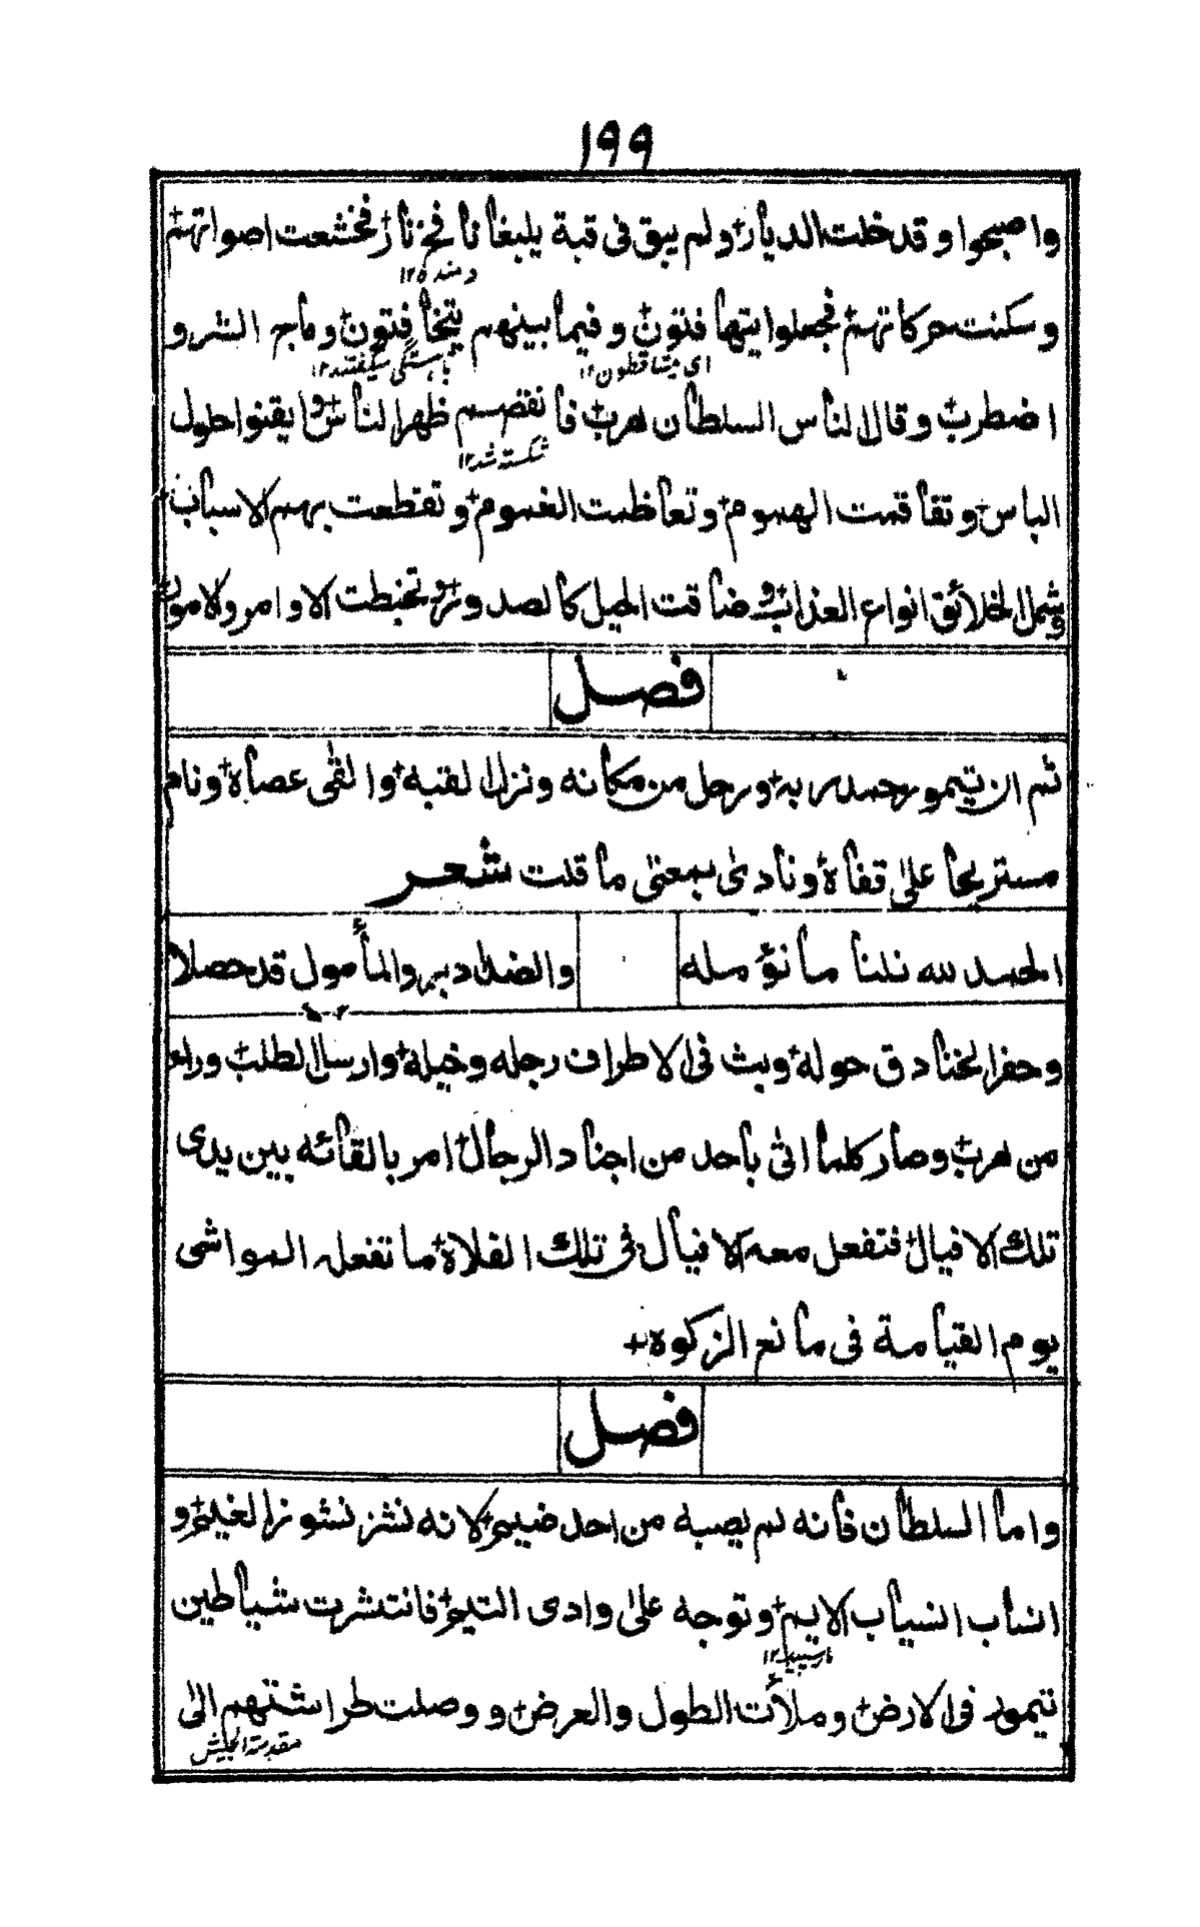 ١٩٩
واصبحوا وقد خلت الديار+ ولم يبق فى قبة يلبغا نافخ نار+ فخشعت اصواتهم+
دمنده ١٢
وسكنت حركاتهم+ فجعلوا يتهافتون+ وفيما بينهم يتخافتون+ وماج الشر و
اى يتساقطون ١٢
اضطرب+ وقال الناس السلطان هرب+ فانقصم ظهر الناس+ وايقنوا حلول
شكسته شد ١٢
الباس+ وتفاقمت الهموم+ وتعاظمت الغموم+ وتقطعت بهم الاسباب+
وشمل الخلائق انواع العذاب+ وضاقت الحيل كالصدور+ وتخبطت الاوامر والامور+
فصل
ثم ان تيمور حمد ربه+ ورحل من مكانه ونزل القبة+ والقى عصاه+ ونام
مستريحا على قفاه+ ونادى بمعنى ما قلت شعر
الحمد لله نلنا ما نؤمله
والضد ادبر والمأمول قد حصلا
وحفر الخنادق حوله+ وبث فى الاطراف رجله وخيله+ وارسل الطلب+ وراء
من هرب+ وصار كلما اتى باحد من اجناد الرجال+ امر بالقائه بين يدى
تلك الافيال+ فتفعل معه الافيال+ فى تلك الفلاة+ ما تفعله المواشى
يوم القيامة فى مانع الزكوة+
فصل
واما السلطان فانه لم يصبه من احد ضيم+ لانه نشز نشوز الغيم+ و
انساب انسياب الايم+ وتوجه على وادى التيم+ فانتشرت شياطين
مار سپيد ١٢
تيمور فى الارض+ وملأت الطول والعرض+ ووصلت طراشتهم الى
مقدمة الجيش